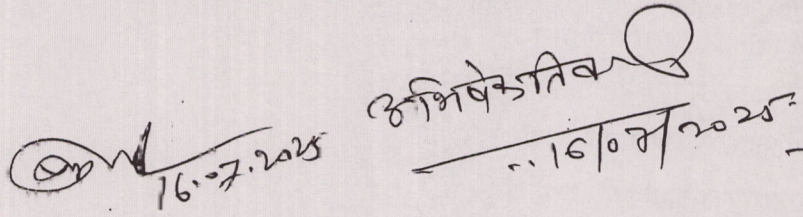 16.07.2025
अभिषेक तिवारी
16/07/2025